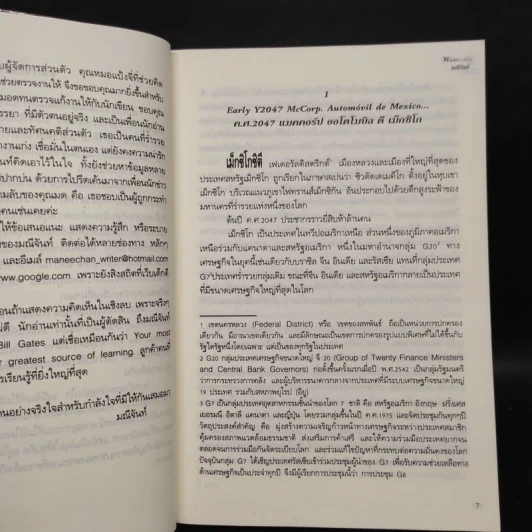 บผู้จัดการส่วนตัว คุณหมอแป้งจี่ที่ช่วยคิด
ช่วยตรวจงานให้ จึงขอขอบคุณมากยิ่งขึ้นสำหรับ
มอดทนตรวจแก้งานให้กับนักเขียน ขอบคุณ
รรยา ที่มีตัวตนอยู่จริง และเป็นเพื่อนนักอ่าน
ายและทัศนคติส่วนตัว เธอเป็นคนที่ร่ำรวย
งานเก่ง เชื่อมั่นในตนเอง แต่ยังคงความน่ารัก
นต์คิดเอาไว้ในใจ ทั้งยังช่วยหาข้อมูลหลาย
ปากปน ด้วยการไปรีดเค้นมาจากเพื่อนนักข่าว
ามลับของคุณมด คือ เธอชอบเป็นผู้ถูกกระทำ
คนเช่นเคยค่ะ
ให้ข้อเสนอแนะ แสดงความรู้สึก หรือระบาย
ของมณีจันท์ ติดต่อได้หลายช่องทาง หลักๆ
และอีเมล์ maneechan_writer@hotmail.com
www.google.com เพราะยังสิงสถิตที่เว็บเด็กดี
อนถ้าแสดงความคิดเห็นในเชิงลบ เพราะจริงๆ
ดี นักอ่านเท่านั้นที่เป็นผู้ตัดสิน ถึงมณีจันท์
Bill Gates แต่เชื่อเหมือนกันว่า Your most
r greatest source of learning ลูกค้าคนที่
ารเรียนรู้ที่ยิ่งใหญ่ที่สุด
านอย่างจริงใจสำหรับกำลังใจที่มีให้กันเสมอมา
มณีจันท์
มณีจันท์
1
Early Y2047 McCorp. Automóvil de Mexico...
ค.ศ.2047 แมคคอร์ป ออโตโมบิล ดี เม็กซิโก
เม็กซิโกซิตี เฟเดอรัลดิสตริกต์¹ เมืองหลวงและเมืองที่ใหญ่ที่สุดของ
ประเทศสหรัฐเม็กซิโก ถูกเรียกในภาษาสเปนว่า ซิวดัดเดเมฮิโก ตั้งอยู่ในหุบเขา
เม็กซิโก บริเวณแนวภูเขาไฟทรานส์เม็กซิกัน อันประกอบไปด้วยตึกสูงระฟ้าของ
มหานครที่ร่ำรวยแห่งหนึ่งของโลก
ต้นปี ค.ศ.2047 ประชากรราวยี่สิบห้าล้านคน
เม็กซิโก เป็นประเทศในทวีปอเมริกาเหนือ ส่วนหนึ่งของภูมิภาคอเมริกา
เหนือร่วมกับแคนาดาและสหรัฐอเมริกา หนึ่งในมหาอำนาจกลุ่ม G20² ทาง
เศรษฐกิจในยุคนี้เช่นเดียวกับบราซิล จีน อินเดีย และรัสเซีย แทนที่กลุ่มประเทศ
G7³ประเทศร่ำรวยกลุ่มเดิม ขณะที่จีน อินเดีย และสหรัฐอเมริกากลายเป็นประเทศ
ที่มีขนาดเศรษฐกิจใหญ่ที่สุดในโลก
1 เขตนครหลวง (Federal District) หรือ เขตของสหพันธ์ ถือเป็นหน่วยการปกครอง
เดี่ยวกัน มีอาณาเขตเดียวกัน และมีลักษณะเป็นเขตการปกครองรูปแบบพิเศษที่ไม่ได้ขึ้นกับ
รัฐใดรัฐหนึ่งโดยเฉพาะ แต่เป็นของทุกรัฐในประเทศ
2 G20 กลุ่มประเทศเศรษฐกิจขนาดใหญ่ จี 20 (Group of Twenty Finance Ministers
and Central Bank Governors) ก่อตั้งขึ้นครั้งแรกเมื่อปี พ.ศ.2542 เป็นกลุ่มรัฐมนตรี
ว่าการกระทรวงการคลัง และผู้บริหารธนาคารกลางจากประเทศที่มีระบบเศรษฐกิจขนาดใหญ่
19 ประเทศ รวมกับสหภาพยุโรป (อียู)
3 G7 เป็นกลุ่มประเทศอุตสาหกรรมชั้นนำของโลก 7 ชาติ คือ สหรัฐอเมริกา อังกฤษ ฝรั่งเศส
เยอรมนี อิตาลี แคนาดา และญี่ปุ่น โดยรวมกลุ่มขึ้นในปี ค.ศ.1975 และจัดประชุมกันทุกๆปี
วัตถุประสงค์สำคัญ คือ มุ่งสร้างความเจริญก้าวหน้าทางเศรษฐกิจระหว่างประเทศสมาชิก
คุ้มครองสภาพแวดล้อมธรรมชาติ ส่งเสริมการค้าเสรี และให้ความร่วมมือประเทศยากจน
ตลอดจนการร่วมมือกันจัดระเบียบโลก และร่วมแก้ไขปัญหาที่กระทบต่อความมั่นคงของโลก
ปัจจุบันกลุ่ม G7 ได้เชิญประเทศรัสเซียเข้าร่วมประชุมผู้นำของ G7 เพื่อรับความช่วยเหลือทาง
ด้านเศรษฐกิจเป็นประจำทุกปี จึงมีผู้เรียกการประชุมนี้ว่า การประชุม G8
7